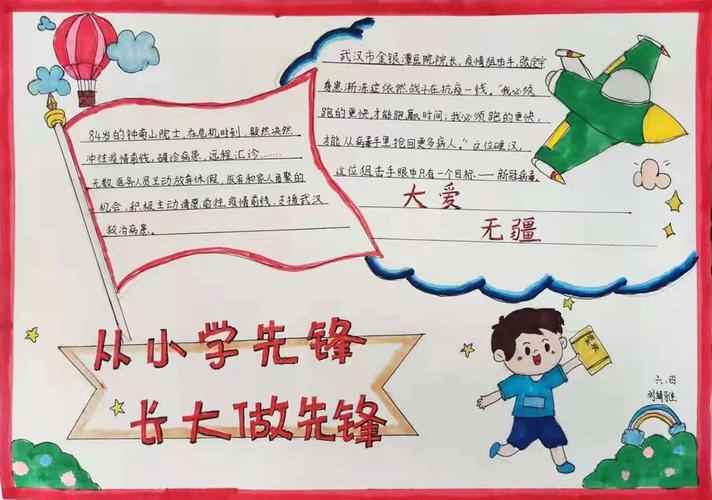 武汉市金银潭医院院长,疫情狙击手,张定宇
身患渐冻症依然战斗在抗疫一线,“我必须
跑的更快才能跑赢时间;我必须跑的更快,
才能从病毒手里抢回更多病人。”这位硬汉,
这位狙击手眼中只有一个目标——新冠病毒。
大爱
无疆
84岁的钟南山院士,在危机时刻,毅然决然
冲往疫情前线,确诊病患,远程汇诊……
无数医务人员主动放弃休假、放弃和家人团聚的
机会,积极主动请愿前往疫情前线,支援武汉
救治病患。
从小学先锋
长大做先锋
六.四